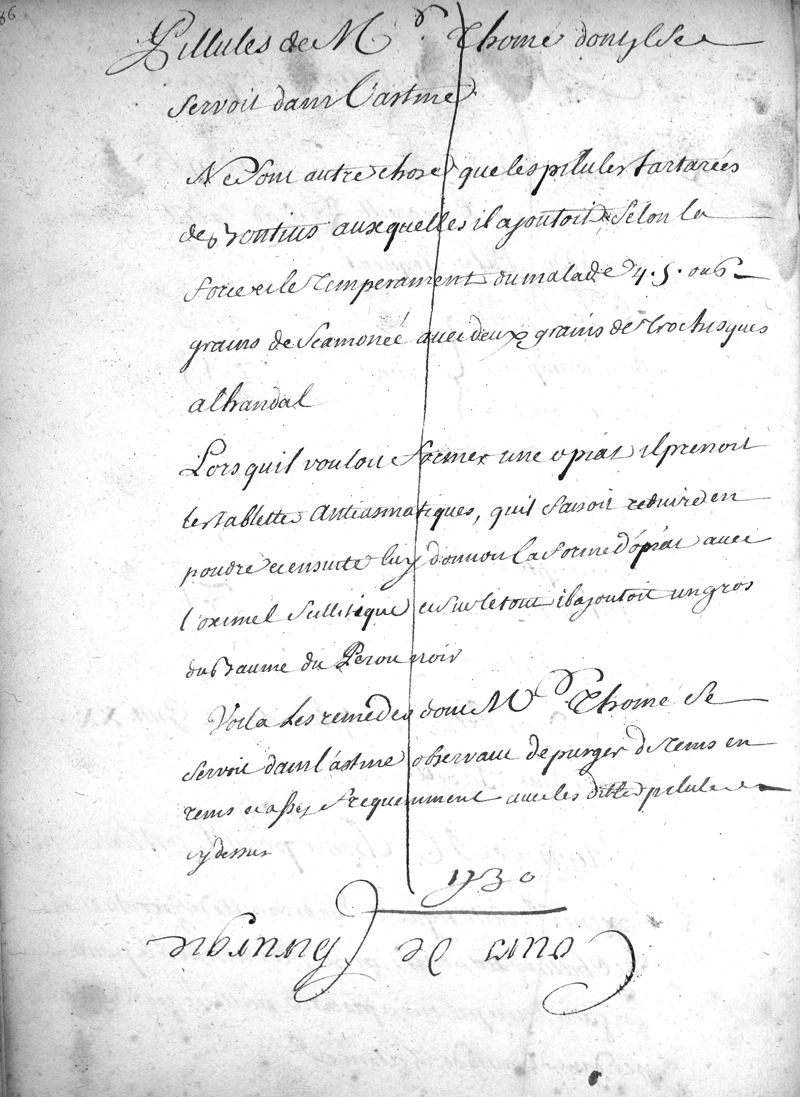 86
Pillules de Mr. Thomé dont il se
servoit dans l'astme
Ne sont autre chose que les pilules tartarées
de Bontius auxquelles il ajoutoit selon la
force et le temperament du malade 4. 5. ou 6
grains de scamoneé avec deux grains de trochisques
alhandal
Lorsquil vouloit former une opiat il prenoit
les tablettes Antiasmatiques, quil faisoit reduire en
poudre et ensuite luy donnoit la forme d'ópiat avec
l'oximel scillitique et sur le tout il ajoutoit un gros
du Baume du Perou noir
Voila les remedes dont Mr. Thomé se
servoit dans l'astme observant de purger de tems en
tems et assez frequemment avec les dittes pilules
cy dessus
1730
Cours de